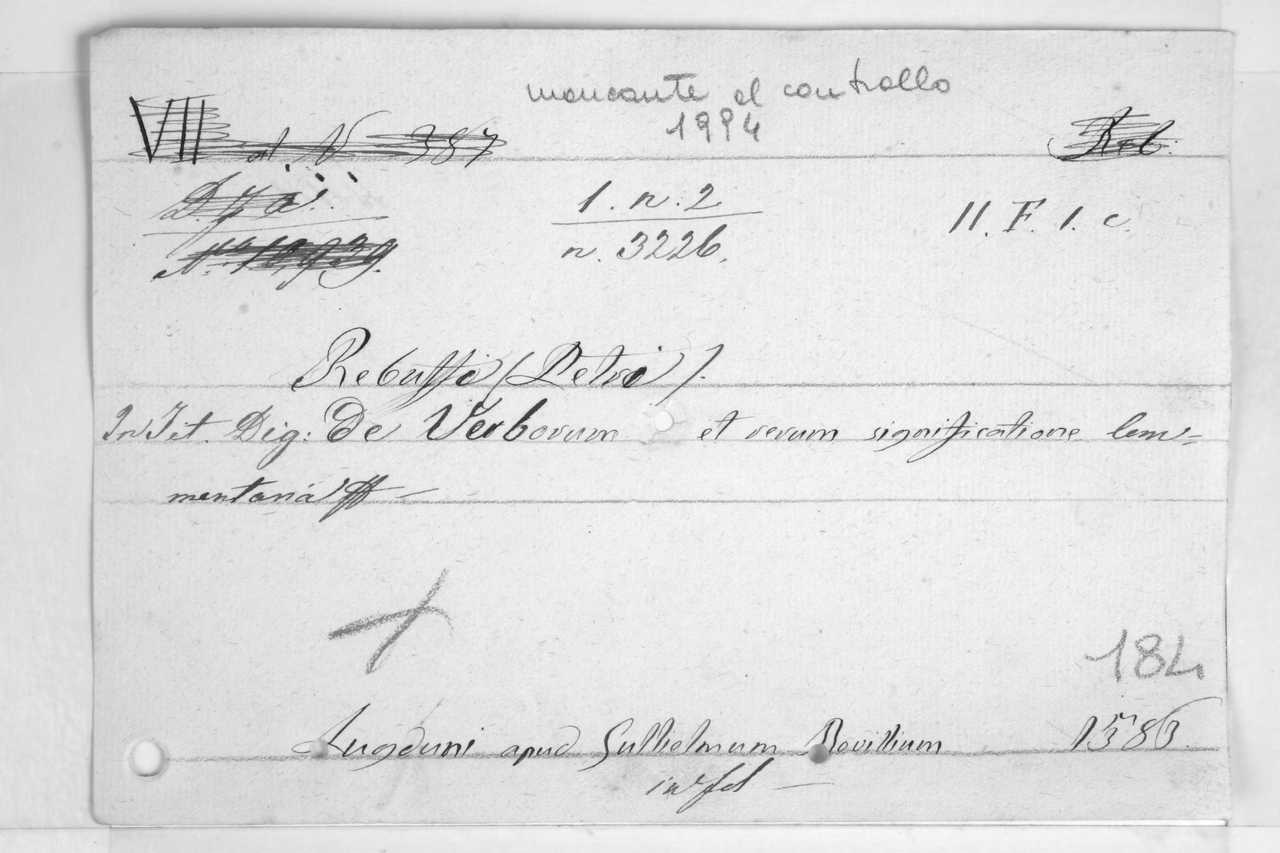 mancante al controllo
1994
VII al N 387 Reb:
1. n. 2
n. 3226. II. F. 1. c.
Rebuffi (Petri).
In Tit. Dig: De Verborum et rerum significatione Com=
mentaria
184
Lugduni apud Gullielmum Rovillium 1586.
in fol —